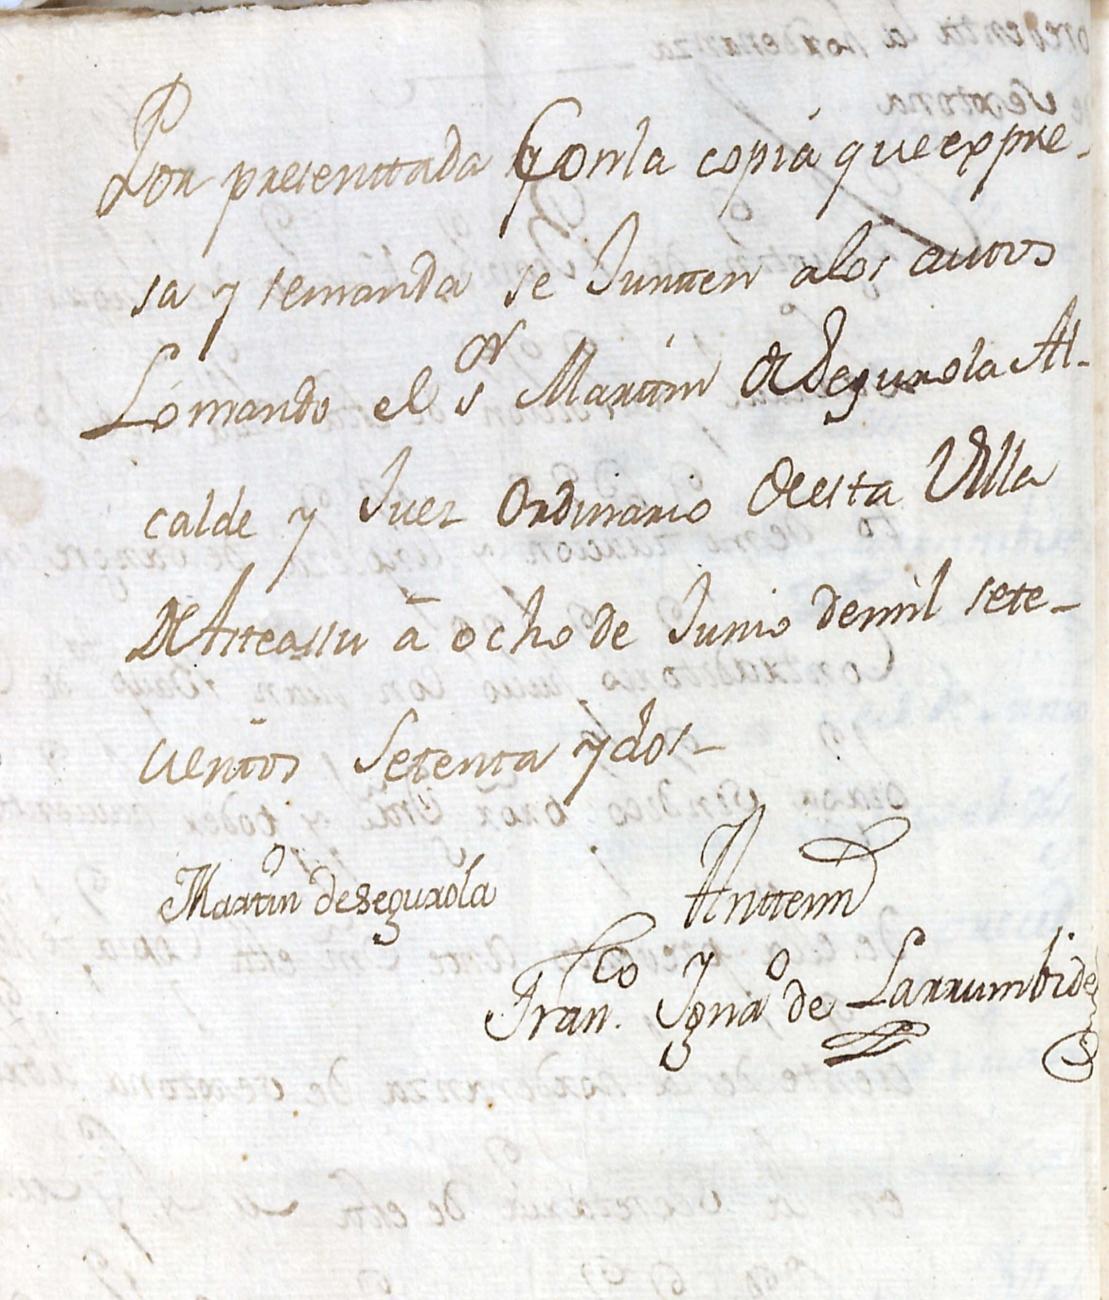 Por presenttada Con la copia que expre-
sa y se manda se Juntten a los auttos
Lo mando el sor Marttin de Segurola Al-
calde y Juez Ordinario de esta Villa
de Asteassu â ocho de Junio de mil sete-
cientos Setenta y dos
Martin de Segurola
Anttemi
Franco. Ygnao de Larrumbide